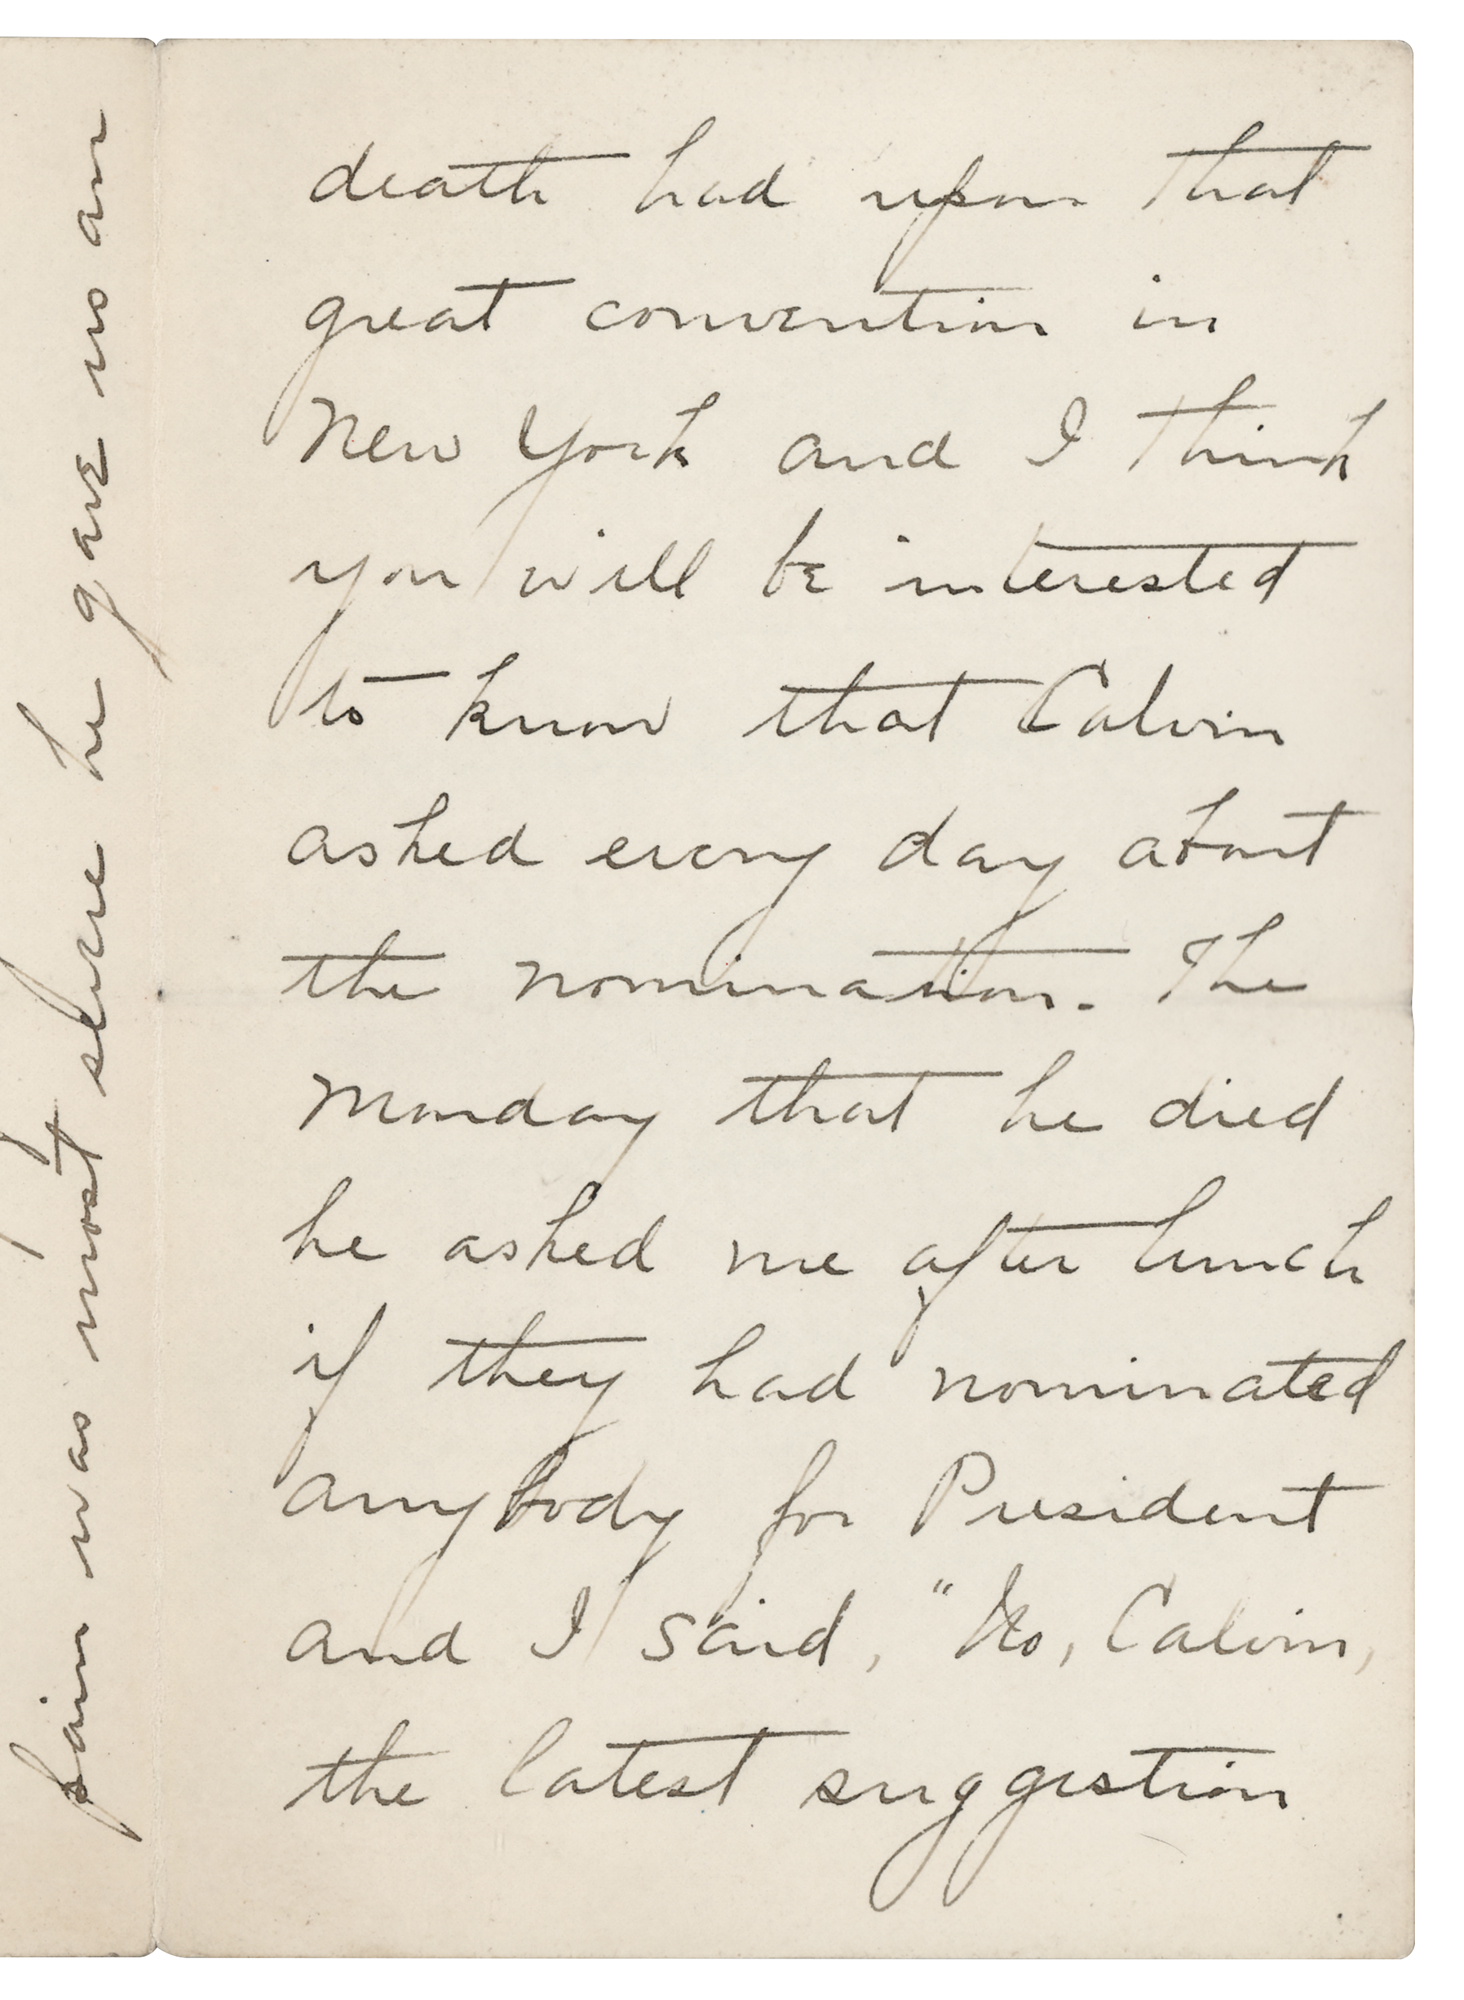 pain was most severe he gave us an
death had upon that
great convention in
New York and I think
you will be interested
to know that Calvin
asked every day about
the nomination. The
Monday that he died
he asked me after lunch
if they had nominated
anybody for President
and I said, "No, Calvin,
the latest suggestion